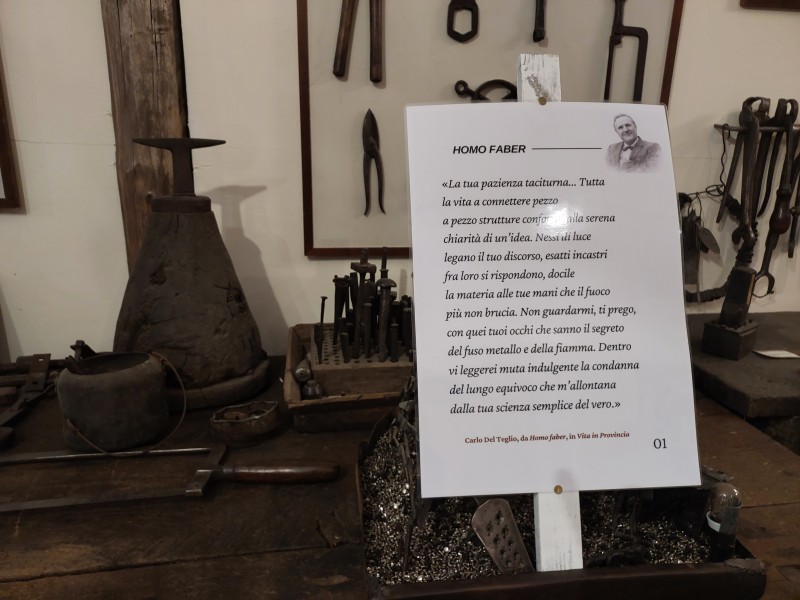 HOMO FABER
«La tua pazienza taciturna... Tutta
la vita a connettere pezzo
a pezzo strutture conformi alla serena
chiarità di un'idea. Nessi di luce
legano il tuo discorso, esatti incastri
fra loro si rispondono, docile
la materia alle tue mani che il fuoco
più non brucia. Non guardarmi, ti prego,
con quei tuoi occhi che sanno il segreto
del fuso metallo e della fiamma. Dentro
vi leggerei muta indulgente la condanna
del lungo equivoco che m'allontana
dalla tua scienza semplice del vero.»
Carlo Del Teglio, da Homo faber, in Vita in Provincia
01